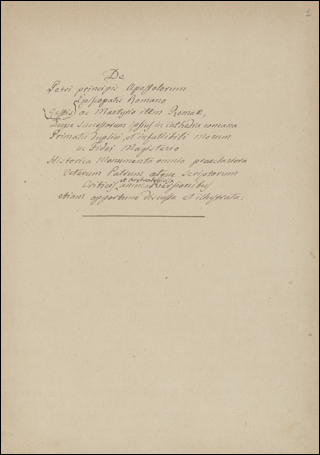 1
De
Petri principis Apostolorum
Episcopatu Romano
ac Martyrio item Romae,
Successorum in cathedra romana
Primatu duplici, et infallibili Morum
ac Fidei Magisterio
Historica Monumenta omnia praeclariora
Veterum Patrum, atque Scriptorum
criticis
etiam opportune discussa et illustrata.